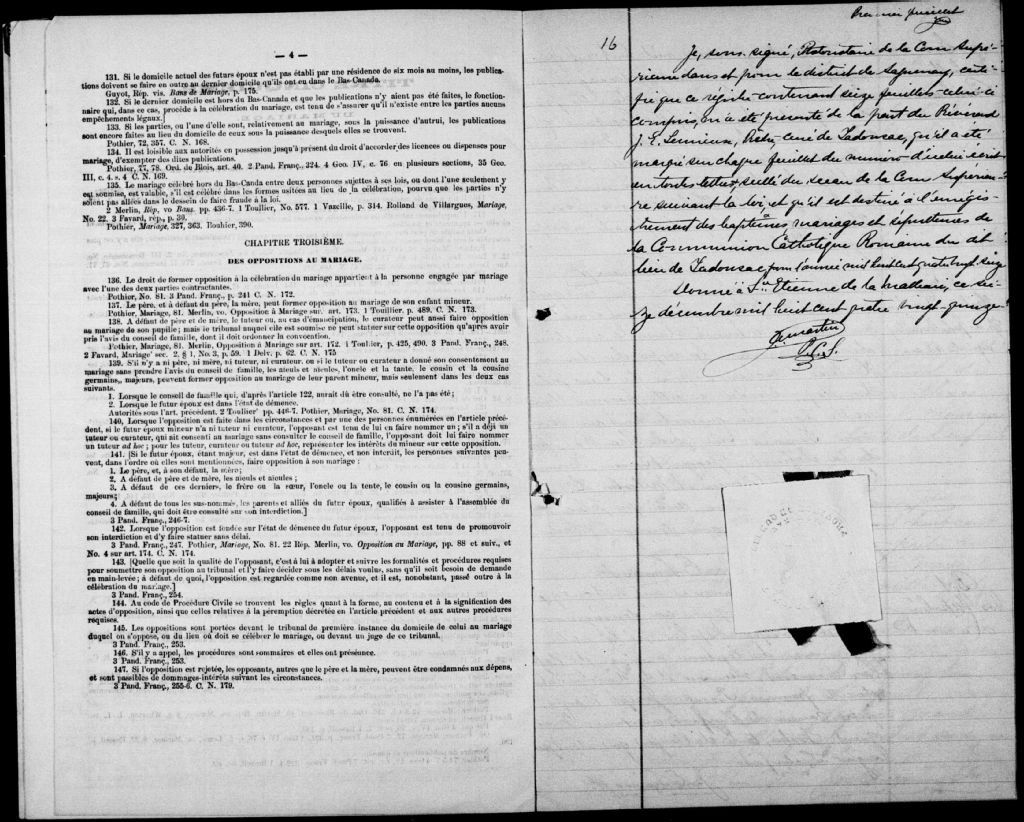 — 4 —
131. Si le domicile actuel des futurs époux n'est pas établi par une résidence de six mois au moins, les publica-
tions doivent se faire en outre au dernier domicile qu'ils ont eu dans le Bas-Canada.
Guyot, Rép. vis. Bans de Mariage, p. 175.
132. Si le dernier domicile est hors du Bas-Canada et que les publications n'y aient pas été faites, le fonction-
naire qui, dans ce cas, procède à la célébration du mariage, est tenu de s'assurer qu'il n'existe entre les parties aucuns
empêchements légaux.]
133. Si les parties, ou l'une d'elles, sont, relativement au mariage, sous la puissance d'autrui, les publications
sont encore faites au lieu du domicile de ceux sous la puissance desquels elles se trouvent.
Pothier, 72, 357. C. N. 168.
134. Il est loisible aux autorités en possession jusqu'à présent du droit d'accorder des licences ou dispenses pour
mariage, d'exempter des dites publications.
Pothier, 77, 78. Ord. de Blois, art. 40. 2 Pand. Franç., 224. 4 Geo. IV, c. 76 en plusieurs sections, 35 Geo.
III, c. 4. s. 4 C. N. 169.
135. Le mariage célébré hors du Bas-Canda entre deux personnes sujettes à ses lois, ou dont l'une seulement y
est soumise, est valable, s'il est célébré dans les formes usitées au lieu de la célébration, pourvu que les parties n'y
soient pas allées dans le dessein de faire fraude à la loi.
2 Merlin, Rép, vo Bans. pp. 436-7. 1 Toullier, No. 577. 1 Vazeille, p. 314. Rolland de Villargues, Mariage,
No. 22. 3 Favard, rép., p. 30.
Pothier, Mariage, 327, 363. Bouhier, 390.
CHAPITRE TROISIÈME.
DES OPPOSITIONS AU MARIAGE.
136. Le droit de former opposition à la célébration du mariage appartient à la personne engagée par mariage
avec l'une des deux parties contractantes.
Pothier, No. 81. 3 Pand. Franç., p. 241 C. N. 172.
137. Le père, et à défaut du père, la mère, peut former opposition au mariage de son enfant mineur.
Pothier, Mariage, 81. Merlin, vo. Opposition à Mariage sur. art. 173. 1 Toullier. p. 489. C. N. 173.
138. A défaut de père et de mère, le tuteur ou, au cas d'émancipation, le curateur peut aussi faire opposition
au mariage de son pupille; mais le tribunal auquel elle est soumise ne peut statuer sur cette opposition qu'après avoir
pris l'avis du conseil de famille, dont il doit ordonner la convocation.
Pothier, Mariage, 81. Merlin, Opposition à Mariage sur art. 172. 1 Toulier, p. 425, 490. 3 Pand. Franç., 248.
2 Favard, Mariage' sec. 2. § 1, No. 3, p. 59. 1 Delv. p. 62. C. N. 175
139. S'il n'y a ni père, ni mère, ni tuteur, ni curateur. ou si le tuteur ou curateur a donné son consentement au
mariage sans prendre l'avis du conseil de famille, les aïeuls et aïeules, l'oncle et la tante, le cousin et la cousine
germains, majeurs, peuvent former opposition au mariage de leur parent mineur, mais seulement dans les deux cas
suivants.
1. Lorsque le conseil de famille qui, d'après l'article 122, aurait dû être consulté, ne l'a pas été;
2. Lorsque le futur époux est dans l'état de démence.
Autorités sous l'art. précédent. 2 Toullier' pp. 446-7. Pothier, Mariage, No. 81. C. N. 174.
140, Lorsque l'opposition est faite dans les circonstances et par une des personnes énumérées en l'article précé-
dent, si le futur époux mineur n'a ni tuteur ni curateur, l'opposant est tenu de lui en faire nommer un; s'il a déjà un
tuteur ou curateur, qui ait consenti au mariage sans consulter le conseil de famille, l'opposant doit lui faire nommer
un tuteur ad hoc; pour les tuteur, curateur ou tuteur ad hoc, représenter les intérêts du mineur sur cette opposition.
141. [Si le futur époux, étant majeur, est dans l'état de démence, et non interdit, les personnes suivantes peu-
vent, dans l'ordre où elles sont mentionnées, faire opposition à son mariage:
1. Le père, et, à son défaut, la mère;
2. A défaut de père et de mère, les aïeuls et aïeules;
3. A défaut de ces derniers, le frère ou la sœur, l'oncle ou la tente, le cousin ou la cousine germains,
majeurs;
4. A défaut de tous les sus-nommés, les parents et alliés du futur époux, qualifiés à assister à l'assemblée du
conseil de famille, qui doit être consulté sur son interdiction.]
3 Pand. Franç., 246-7.
142. Lorsque l'opposition est fondée sur l'état de démence du futur époux, l'opposant est tenu de promouvoir
son interdiction et d'y faire statuer sans délai.
3 Pand. Franç., 247. Pothier, Mariage, No. 81. 22 Rép. Merlin, vo. Opposition au Mariage, pp. 88 et suiv., et
No. 4 sur art. 174. C. N. 174.
143. [Quelle que soit la qualité de l'opposant, c'est à lui à adopter et suivre les formalités et procédures requises
pour soumettre son opposition au tribunal et l'y faire décider sous les délais voulus, sans qu'il soit besoin de demande
en main-levée; à défaut de quoi, l'opposition est regardée comme non avenue, et il est, nonobstant, passé outre à la
célébration du mariage.]
3 Pand. Franç., 254.
144. Au code de Procédure Civile se trouvent les règles quant à la forme, au contenu et à la signification des
actes d'opposition, ainsi que celles relatives à la péremption décrétée en l'article précédent et aux autres procédures
requises.
145. Les oppositions sont portées devant le tribunal de première instance du domicile de celui au mariage
duquel on s'oppose, ou du lieu où doit se célébrer le mariage, ou devant un juge de ce tribunal.
3 Pand. Franç., 253.
146. S'il y a appel, les procédures sont sommaires et elles ont préséance.
3 Pand. Franç., 253.
147. Si l'opposition est rejetée, les opposants, autres que le père et la mère, peuvent être condamnés aux dépens,
et sont passibles de dommages-intérêts suivant les circonstances.
3 Pand. Franç., 255-6. C. N. 179.
16
Premier feuillet
Je, sous-signé, Protonotaire de la Cour Supé-
rieure dans et pour le district de Saguenay, certi-
fie que ce régistre contenant seize feuillets celui-ci
compris, m'a été présenté de la part du Révérend
J. E. Lemieux, Ptre, curé de Tadousac, qu'il a été
marqué sur chaque feuillet du numéro d'icelui écrit
en toutes lettres, scellé du sceau de la Cour Supérieu-
re suivant la loi, et qu'il est destiné à l'enrégis-
trement des baptêmes mariages et sépultures de
la Communion Catholique Romaine du dit
lieu de Tadousac, pour l'année mil huit cent quatre vingt seize
Donné à Ste Etienne de la Malbaie, ce sei-
ze décembre mil huit cent quatre vingt-quinze
P.C.S.